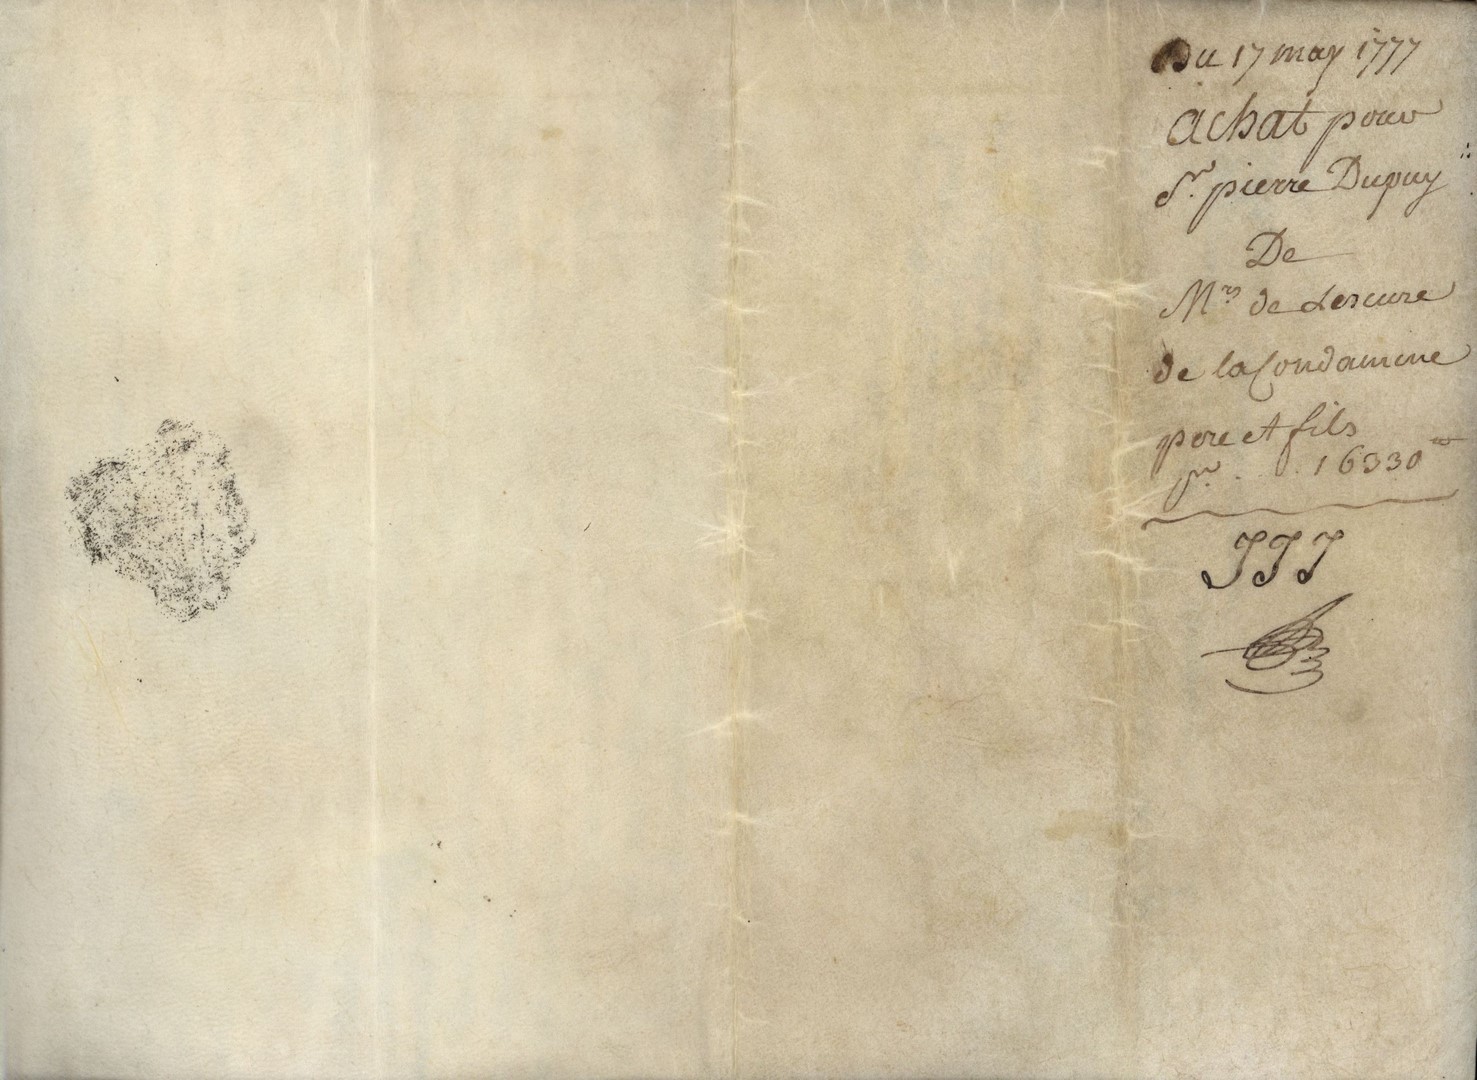 Du 17 may 1777
achat pour
Sr. pierre Dupuy
De
Mrs de Lescure
de la Condamine
pere et fils
pr. . . 16330tt
JJJ